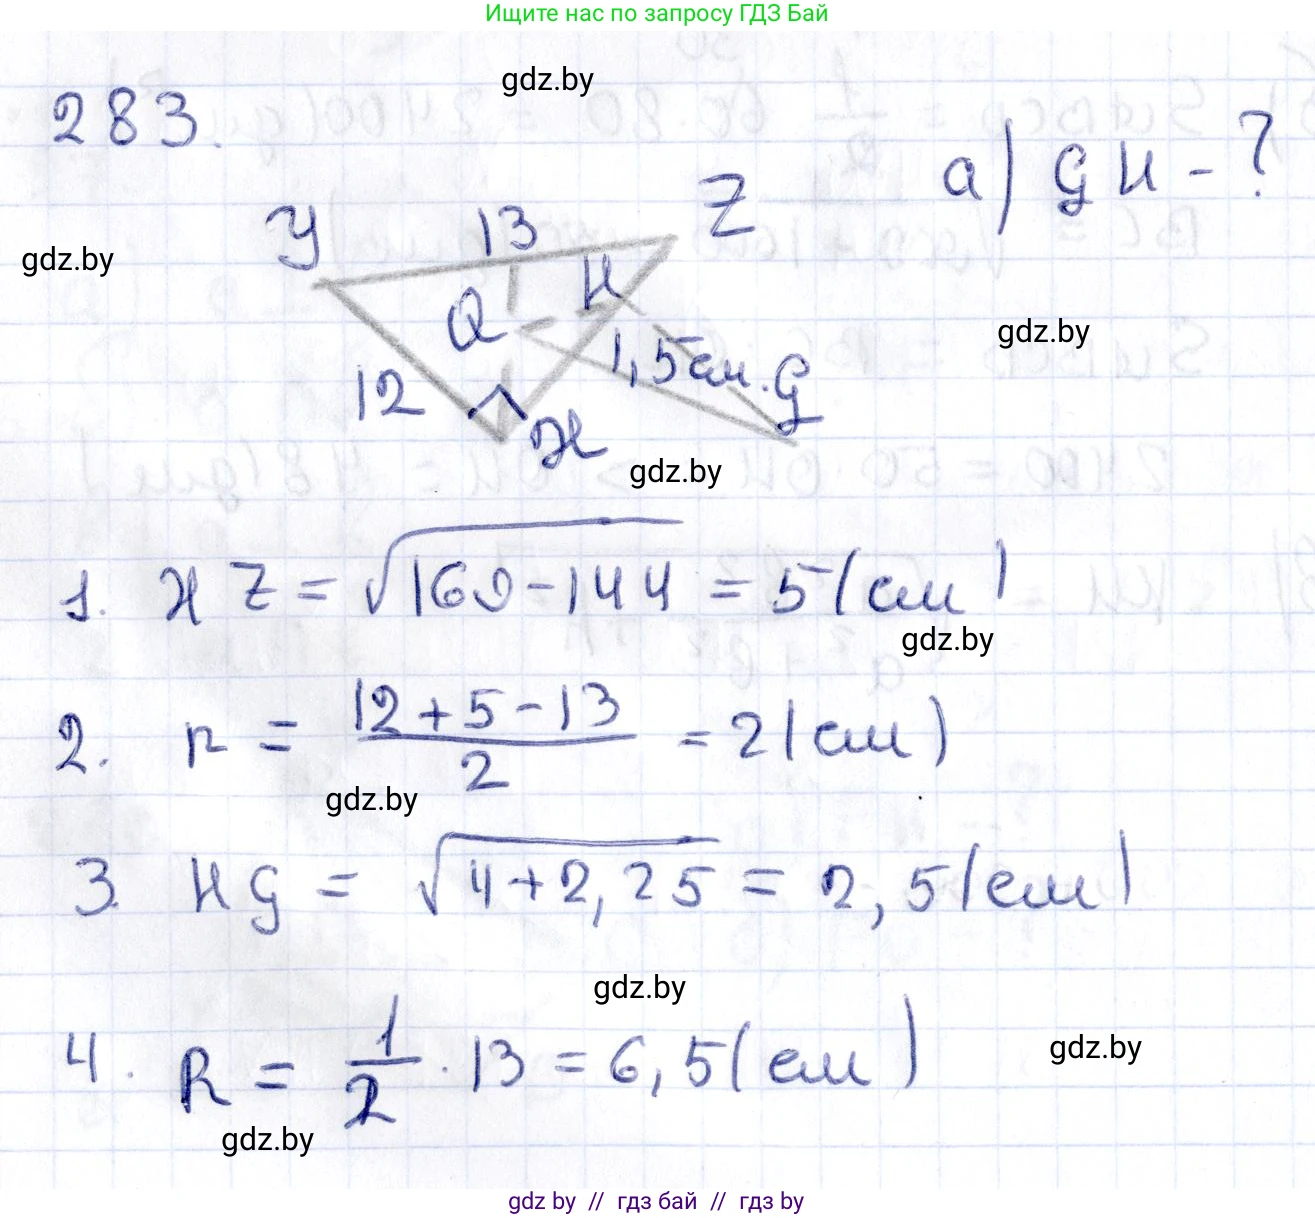 Ищите нас по запросу ГДЗ Бай
gdz.by
283.
а) GH - ?
Y 13 Z
gdz.by
Q H
gdz.by
12 1,5 см. G
X
gdz.by
1. XZ = √169-144 = 5 (см)
gdz.by
2. r = 12+5-13/2 = 2 (см)
gdz.by
3. HG = √4+2,25 = 2,5 (см)
gdz.by
4. R = 1/2 · 13 = 6,5 (см)
gdz.by
gdz.by
gdz by // гдз бай // гдз by